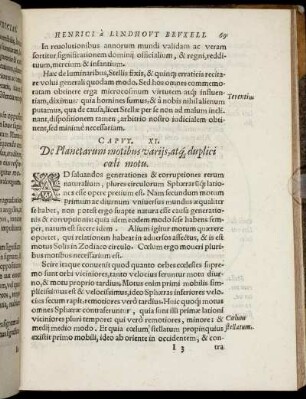 HENRICI à LINDHOVT BRVXELL. 69
In reuolutionibus annorum mundi validam ac veram
sortitur significationem dominij officialium, & regni, reddituum,
& infantium.
Hæc de luminaribus, Stellis fixis, & quinq; erraticis recitare
volui generali modo. Sed hoc summopere commemoratione
obitet erga microcosmum influere,
diximus: qui homines sumus, & à nobis nihil alienum
putantes, qua de causa, licet Stellæ per se non ad medium inclinant,
dispositionem tamen, arbitrio nostro iudicialem obtinent,
sed minimè necessariam.
Terentius
CAPVT. XI.
De Planetarum motibus varijs, atq; duplici
cœli motu.
AD saluandos generationes & corruptiones rerum
naturalium, plures circulorum Sphæras
esse opere pretium est. Nam secundum motum
Primum ac diurnum vniuersus mundus æqualiter
se habet, non potest ergo is esse naturæ esse causæ generationis
& corruptionis quia idem eodem modo sese habens semper,
natum est facere idem. Alium igitur motum quærere
conuenit, qui aliter, & aliter habeat in aduersos affectus, & is est
motus Solis in Zodiaco circulo. Cœlum ergo moueri pluribus
motibus necessarium est.
Scire itaque conuenit quod quanto orbes cœlestes supremo
sunt orbi viciniores, tanto velocius feruntur motu diurno,
& motu proprio tardius. Motus enim primi mobilis simplicissimus
est & velocissimus, ideo Sphæræ inferiores velocius
secum rapit, remotiores verò tardius. Huic quoq; motus
omnes Sphæræ contraferuntur, quia sunt illi primæ lationi
viciniores pluri temporet qui verò remotiores, minore: &
medij medio modo. Et quia cœlum stellarum propinquius
existit primo mobili, ideo ab oriente in occidentem, &
Cœlum
stellatum.
I 3 tra